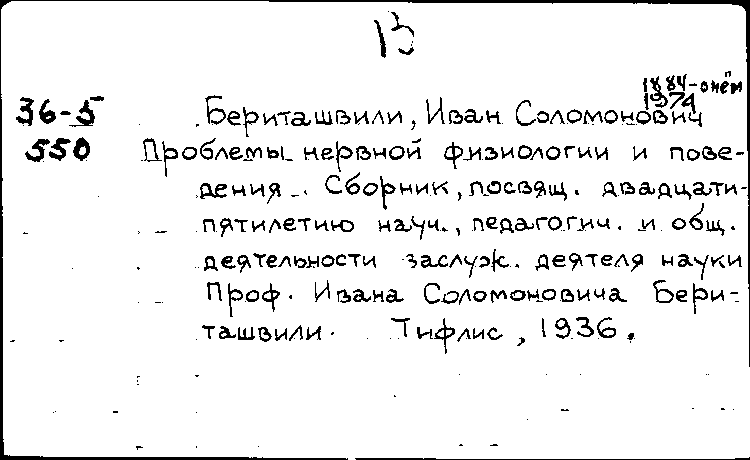 13
1884-о нём
36-5 Бериташвили, Иван Соломонович 1974
550 Проблемы нервной физиологии и пове-
дения. Сборник, посвящ. двадцати-
пятилетию науч., педагогич. и общ.
деятельности заслуж. деятеля науки
Проф. Ивана Соломоновича Бери-
ташвили. Тифлис, 1936.